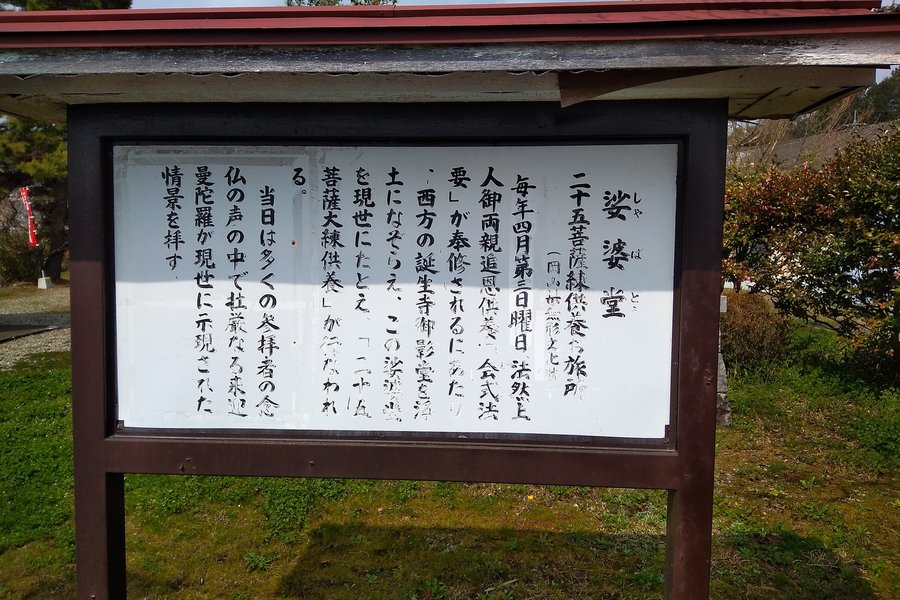 娑婆堂
しゃばどう
二十五菩薩練供養お旅所
（岡山県無形文化
毎年四月第三日曜日、法然上
人御両親追恩供養「会式法
要」が奉修されるにあたり
、西方の誕生寺御影堂を浄
土になぞらえ、この娑婆堂
を現世にたとえ、「二十五
菩薩大練供養」が行なわれ
る。
当日は多くの参拝者の念
仏の声の中で荘厳なる来迎
曼陀羅が現世に示現された
情景を拝す